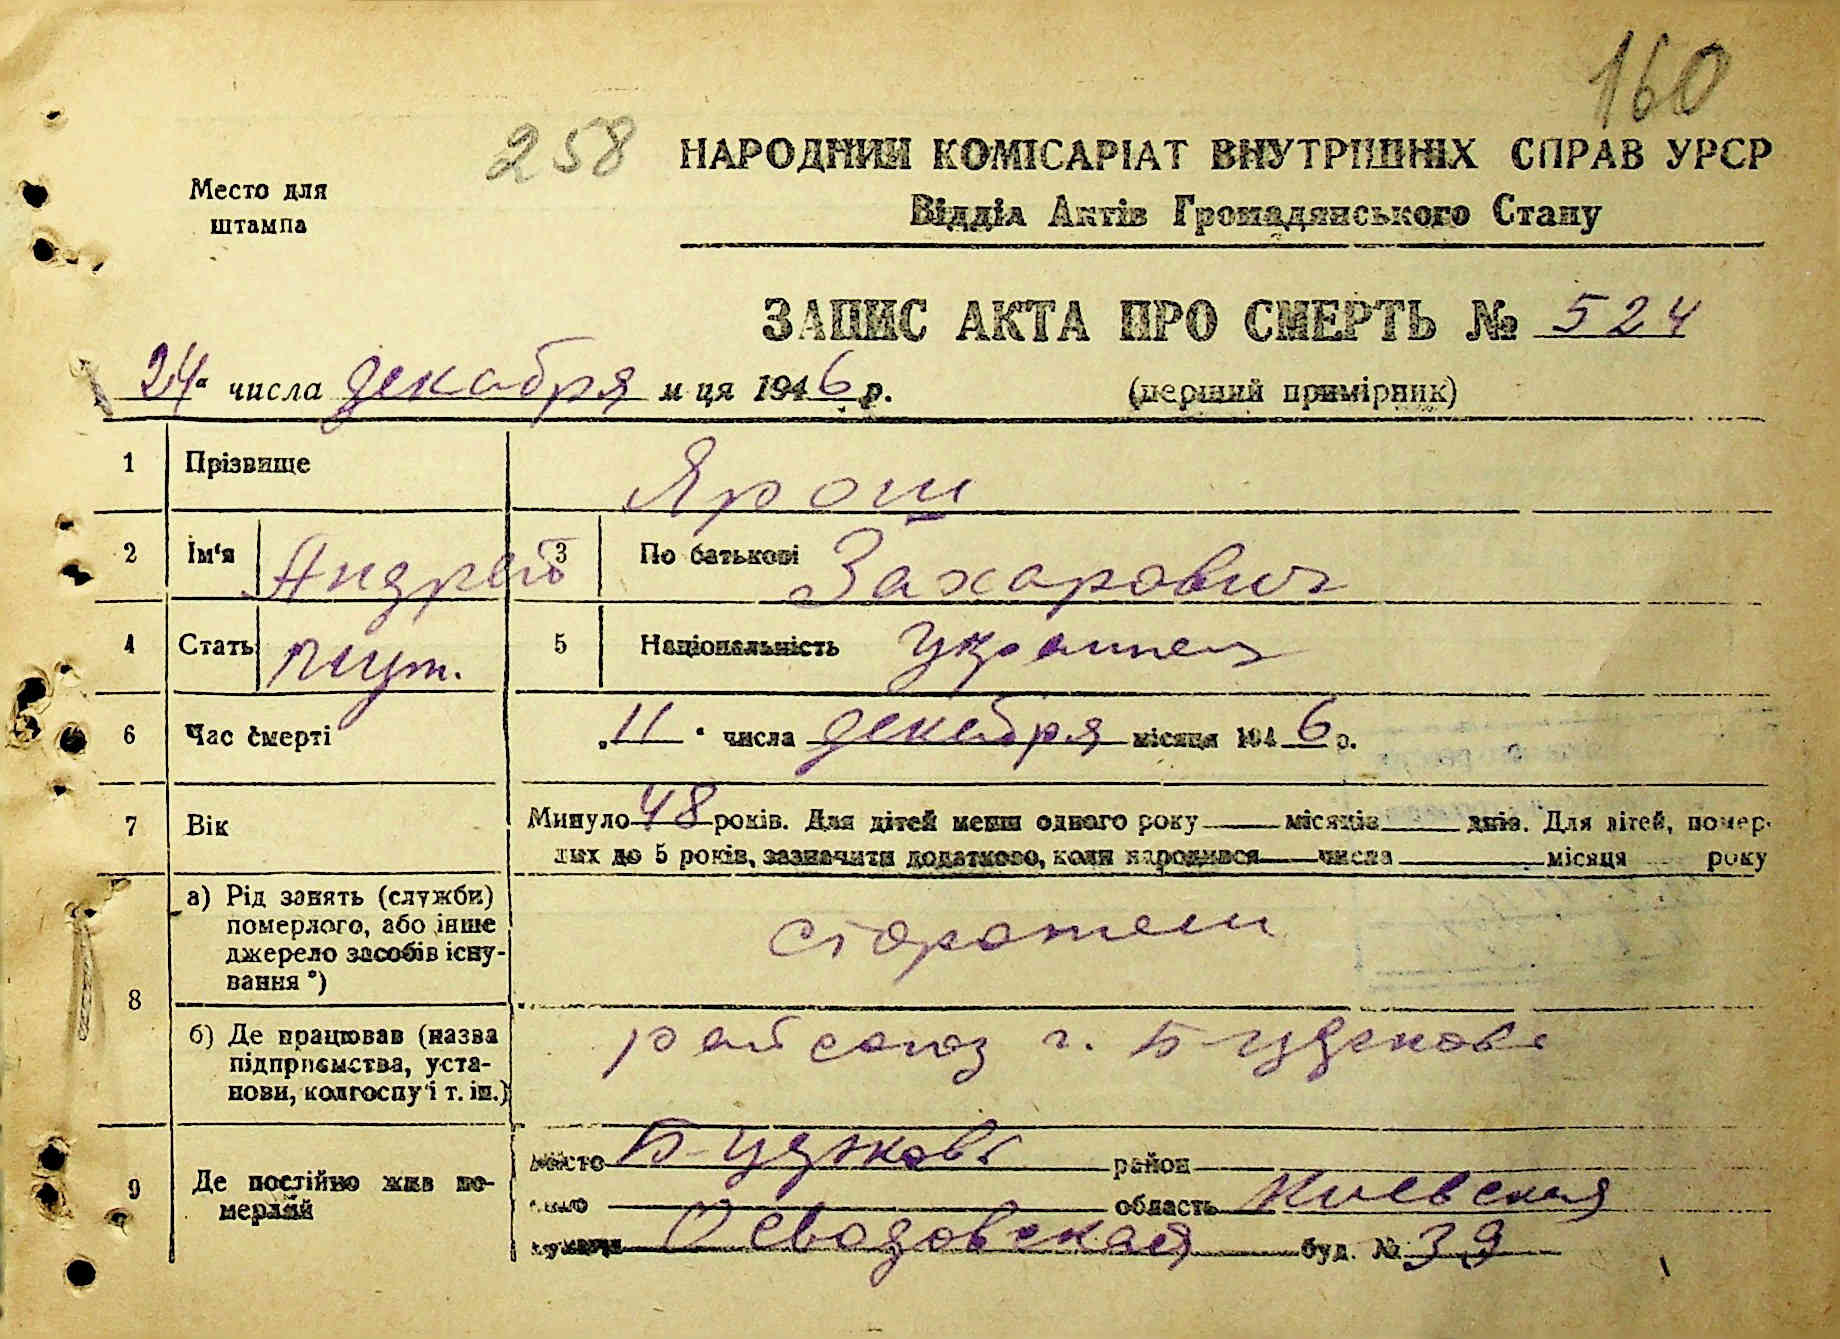 160
258
НАРОДНИЙ КОМІСАРІАТ ВНУТРІШНІХ СПРАВ УРСР
Место для
штампа
Відділ Актів Громадянського Стану
ЗАПИС АКТА ПРО СМЕРТЬ № 524
24 числа декабря м ця 1946 р. (перший примірник)
1 Прізвище Ярош
2 Ім'я Андрей 3 По батькові Захарович
4 Стать муж. 5 Національність украинец
6 Час смерті „11" числа декабря місяця 1946 р.
7 Вік Минуло 48 років. Для дітей менш одного року місяців днів. Для дітей, помер-
лих до 5 років, зазначити додатково, коли народився числа місяця року
8 а) Рід занять (служби)
померлого, або інше
джерело засобів існу-
вання *)
сторожем
б) Де працював (назва
підприємства, уста-
нови, колгоспу і т. ін.)
райсоюз г.
9 Де постійно жив по-
мерлий
місто район
село область Киевская
вулиця буд. № 39